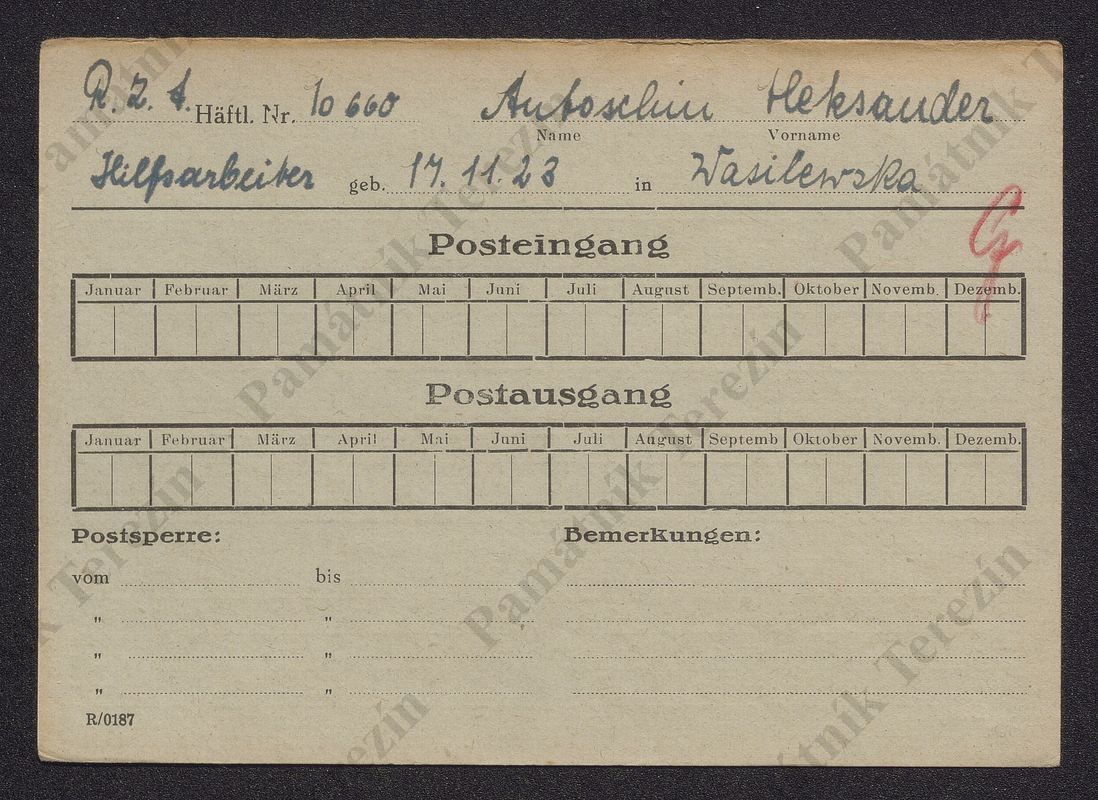 R. Z. A. Häftl. Nr. 10660 Antoschin Aleksander
Name Vorname
Hilfsarbeiter geb. 17. 11. 23 in Wasilewska
Posteingang
Januar Februar März April Mai Juni Juli August Septemb. Oktober Novemb. Dezemb.
Postausgang
Januar Februar März April Mai Juni Juli August Septemb Oktober Novemb. Dezemb.
Postsperre: Bemerkungen:
vom bis
" "
" "
" "
R/0187
Památník Terezín